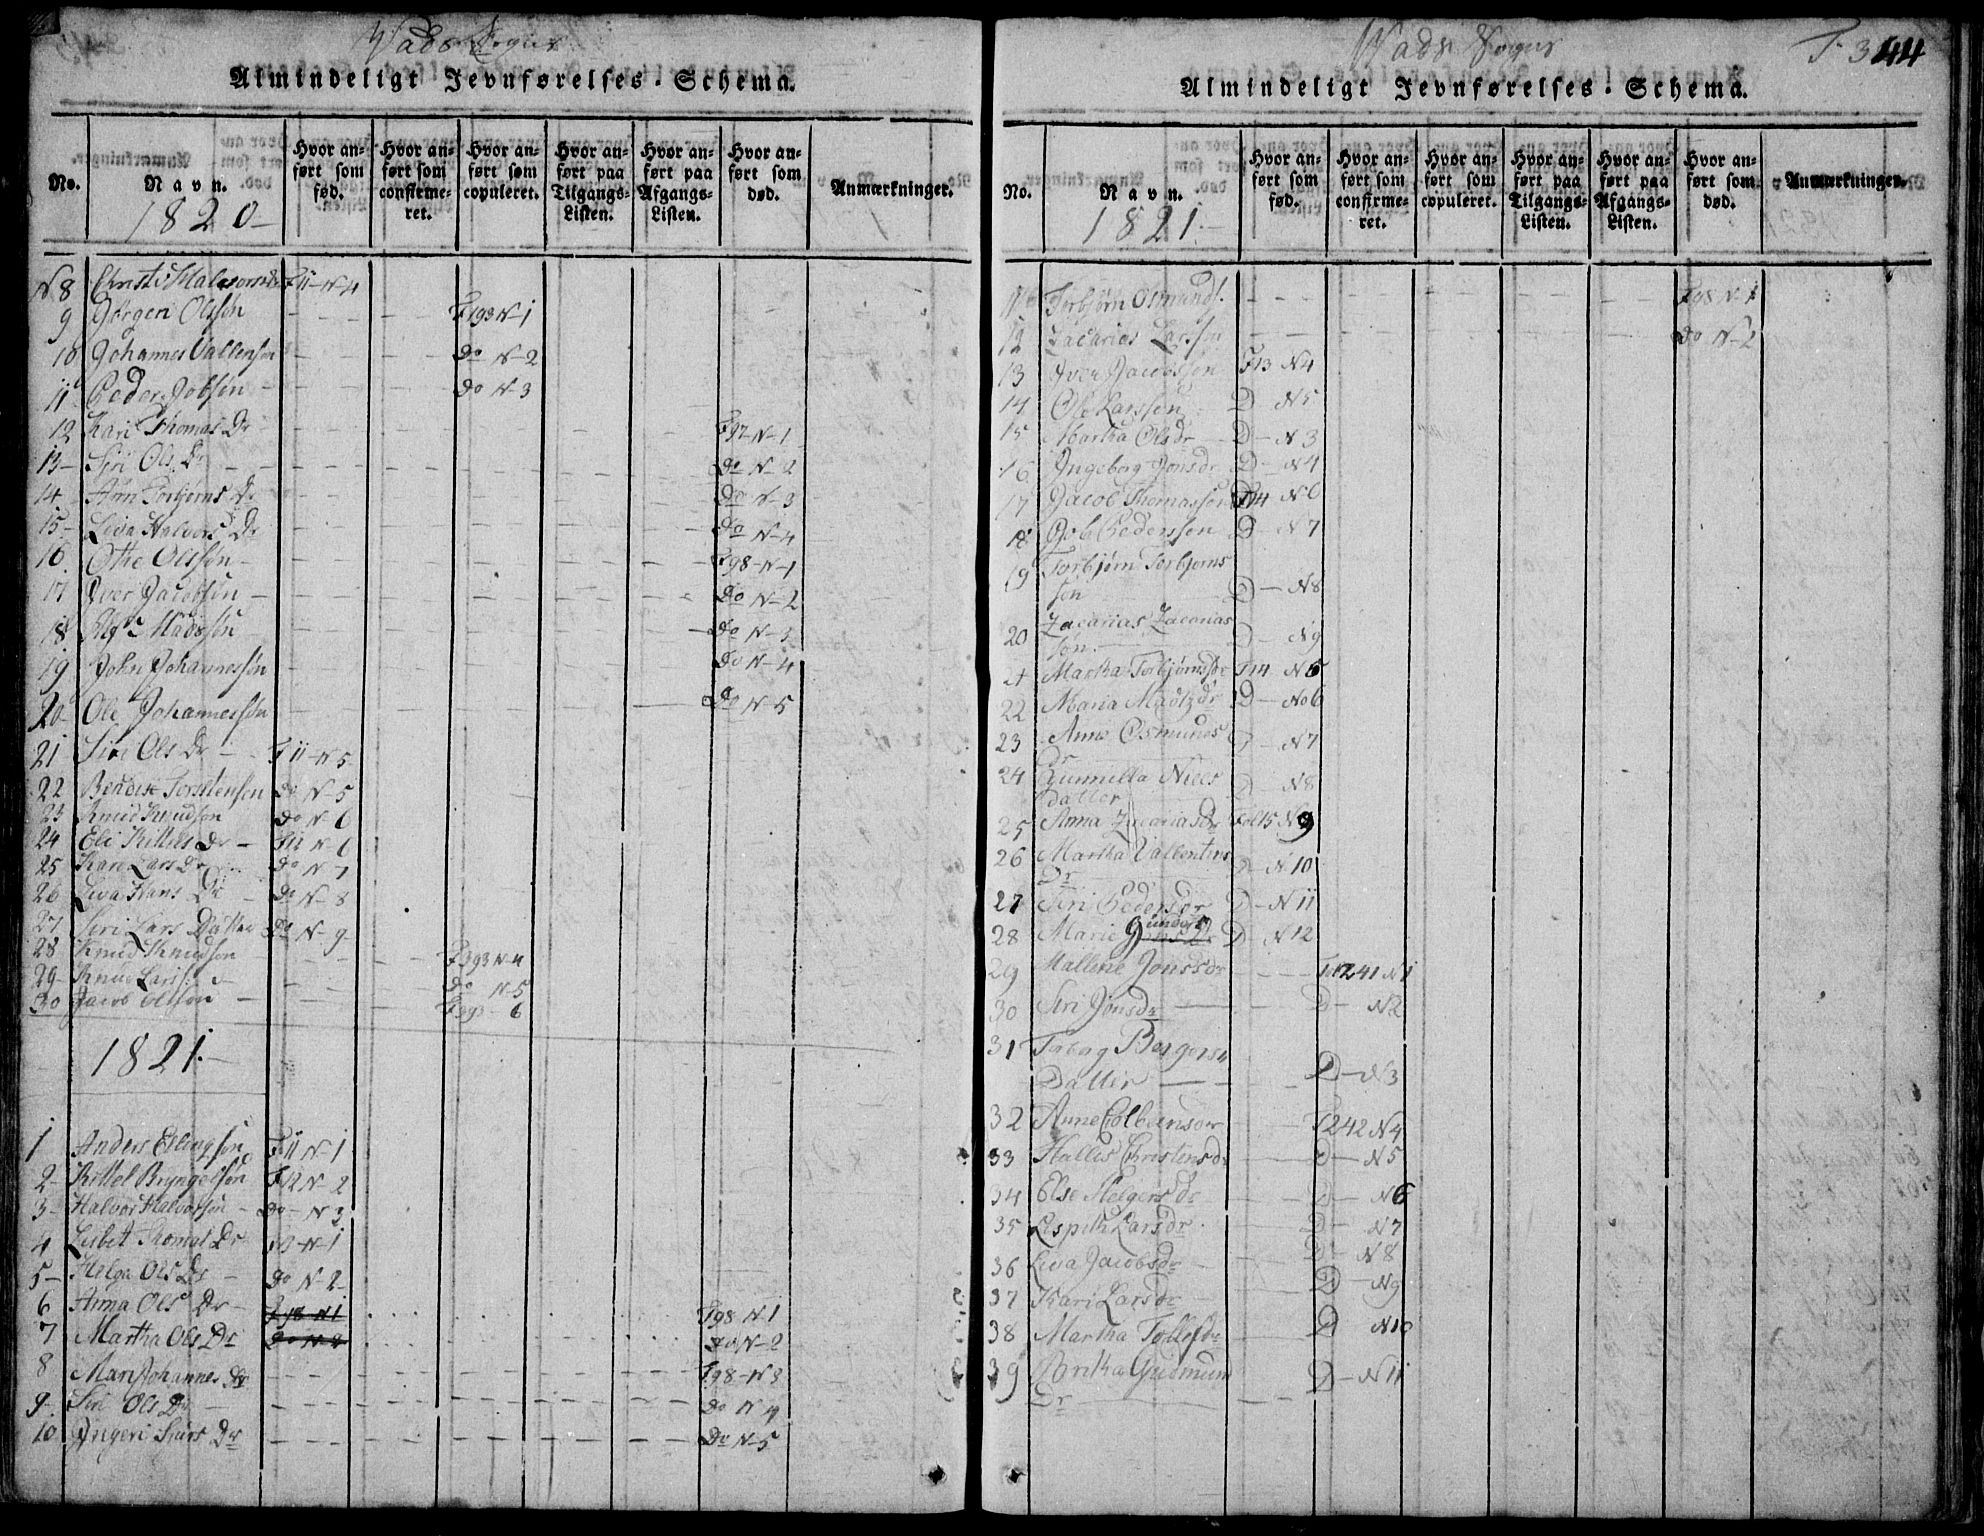 Wads Sogn
Almindeligt Jevnførelses-Schema.
No. Navn. Hvor anført som fød. Hvor anført som confirmeret. Hvor anført som copuleret. Hvor anført paa Tilgangs-Listen. Hvor anført paa Afgangs-Listen. Hvor anført som død. Anmærkninger.
1820
N 8 Christi F11-N4
9 Jørgen Olssøn F193 N-1
10 Johannes Vallensøn do N-2
11 Peder Jobsøn do N-3
12 Kari Thomas Dr F97-N-1
13 Siri Ols Dr do N-2
14 Ann Torbjørns Dr do N-3
15 Liva Halvors Dr do N-4
16 Othe Olssøn F98-N-1
17 Iver Jacobsøn do N-2
18 Alf Madssøn do N-3
19 John Johannessøn do N-4
20 Ole Johannessøn do N-5
21 Siri Ols Dr F11-N5
22 Bendix Torstensen do N-5
23 Knud Knudsøn do N-6
24 Eli Kittels Dr F11 N-6
25 Kari Lars Dr do N-7
26 Liva Hans Dr do N-8
27 Siri Lars Datter do N-9
28 Knud Knudsøn F393 N-4
29 Knud Larss. do N-5
30 Jacob Olssøn F393-6
1821
1 Anders Ellingsøn F11 N-1
2 Kittel Bryngelsøn F12 N-2
3 Halvor Halvorsøn do-N3
4 Lisbet Thomas Dr N-1
5 Helga Ols Dr do N-2
6 Anna Ols Dr F98 N1 F98 N1
7 Martha Ols Dr do N-2 do N-2
8 Mari Johannes Dr F98-N3
9 Siri Ols Dr do N4
10 Ingeri Siurs Dr Do N-5
Wads Sogn
F. 344
Almindeligt Jevnførelses-Schema.
No. Navn. Hvor anført som fød. Hvor anført som confirmeret. Hvor anført som copuleret. Hvor anført paa Tilgangs-Listen. Hvor anført paa Afgangs-Listen. Hvor anført som død. Anmærkninger.
1821
11 Torbjørn Osmunds. F98 N-1
12 Zacarias Larssøn do N-2
13 Iver Jacobssøn F13 N4
14 Ole Larssøn D N5
15 Martha Olsdr D-N3
16 Ingeborg Jonsdr D-N4
17 Jacob Thomassøn F14 N6
18 Job Pederssøn D-N7
19 Torbjørn Torbjørns
søn D-N8
20 Zacarias Zacarias
søn. D-N9
21 Martha Torbjørnsdr F14 N5
22 Maria Madtzdr D-No6
23 Anne Osmunds
Dr D-N7
24 Gunnilla Niels
datter D-N8
25 Anna Zacariasdr Fol15 N9
26 Martha Vallentins
Dr D-N10
27 Siri Pedersdr D-N11
28 Marie Gunders Dr D-N12
29 Mallene Jonssdr Fol241 N1
30 Siri Jonsdr D-N2
31 Torborg Børgers
Datter D-N3
32 Anne Colbensdr F242 N4
33 Hallis Christensdr D-N5
34 Else Helgers dr D-N6
35 Lispith Larsdr D-N7
36 Liva Jacobsdr D-N8
37 Kari Larsdr D N9
38 Martha Tollefsdr D N10
39 Birtha Gudmun
Dr D-N11